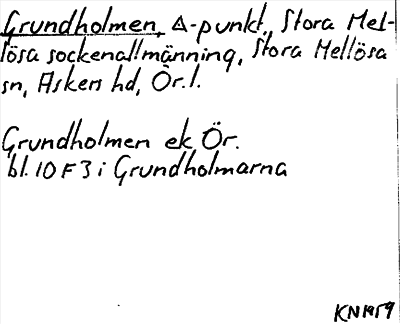 Grundholmen, △-punkt, Stora Mel-
lösa sockenallmänning, Stora Mellösa
sn, Askers hd, Ör. l.
Grundholmen ek Ör.
bl. 10 F 3 i Grundholmarna
KN 1959